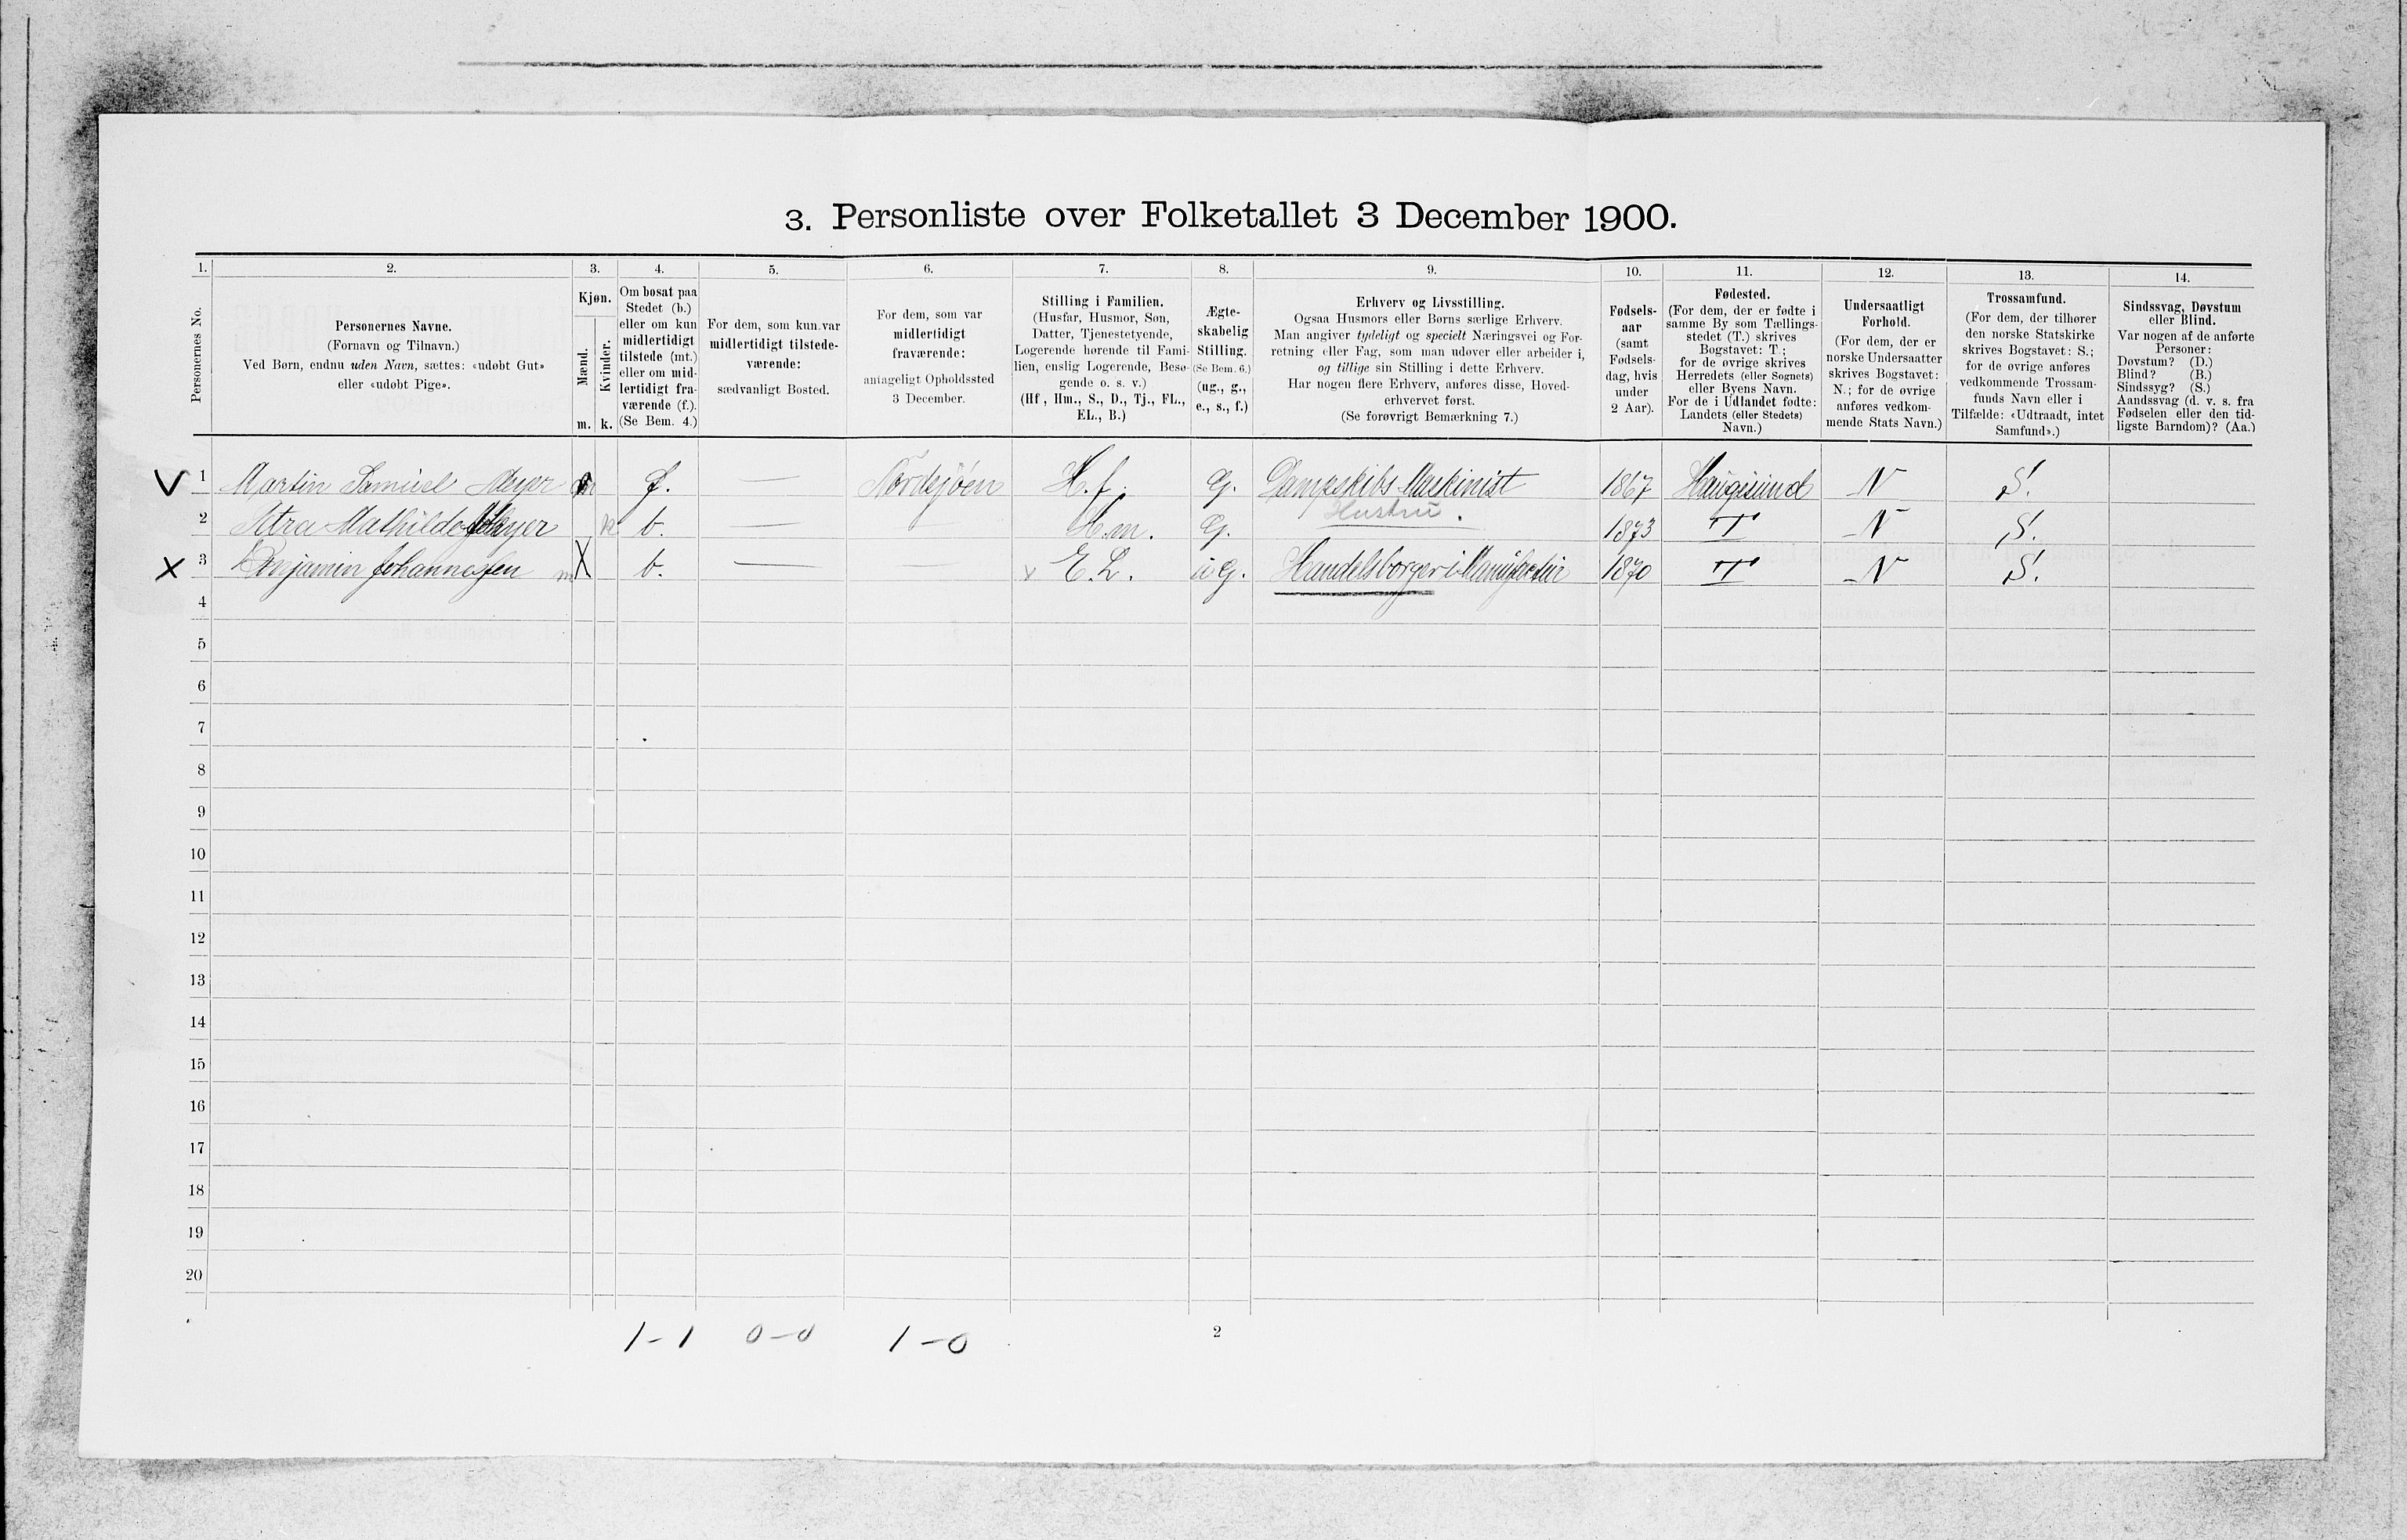 3. Personliste over Folketallet 3 December 1900.
1. 2. 3. 4. 5. 6. 7. 8. 9. 10. 11. 12. 13. 14.
Personernes No.
Personernes Navne.
(Fornavn og Tilnavn.)
Ved Børn, endnu uden Navn, sættes: «udøbt Gut»
eller «udøbt Pige».
Kjøn.
Mænd.
Kvinder.
m. k.
Om bosat paa
Stedet (b.)
eller om kun
midlertidigt
tilstede (mt.)
eller om mid-
lertidigt fra-
værende (f.).
(Se Bem. 4.)
For dem, som kun var
midlertidigt tilstede-
værende:
sædvanligt Bosted.
For dem, som var
midlertidigt
fraværende:
antageligt Opholdssted
3 December.
Stilling i Familien.
(Husfar, Husmor, Søn,
Datter, Tjenestetyende,
Logerende hørende til Fami-
lien, enslig Logerende, Besø-
gende o. s. v.)
(Hf, Hm., S., D., Tj., FL.,
EL., B.)
Ægte-
skabelig
Stilling.
(Se Bem. 6.)
(ug., g.,
e., s., f.)
Erhverv og Livsstilling.
Ogsaa Husmors eller Børns særlige Erhverv.
Man angiver tydeligt og specielt Næringsvei og For-
retning eller Fag, som man udøver eller arbeider i,
og tillige sin Stilling i dette Erhverv.
Har nogen flere Erhverv, anføres disse, Hoved-
erhvervet først.
(Se forøvrigt Bemærkning 7.)
Fødsels-
aar
(samt
Fødsels-
dag, hvis
under
2 Aar).
Fødested.
(For dem, der er fødte i
samme By som Tællings-
stedet (T.) skrives
Bogstavet: T.;
for de øvrige skrives
Herredets (eller Sognets)
eller Byens Navn.
For de i Udlandet fødte:
Landets (eller Stedets)
Navn.)
Undersaatligt
Forhold.
(For dem, der er
norske Undersaatter
skrives Bogstavet:
N.; for de øvrige
anføres vedkom-
mende Stats Navn.)
Trossamfund.
(For dem, der tilhører
den norske Statskirke
skrives Bogstavet: S.;
for de øvrige anføres
vedkommende Trossam-
funds Navn eller i
Tilfælde: «Udtraadt, intet
Samfund».)
Sindssvag, Døvstum
eller Blind.
Var nogen af de anførte
Personer:
Døvstum? (D.)
Blind? (B.)
Sindssyg? (S.)
Aandssvag (d. v. s. fra
Fødselen eller den tid-
ligste Barndom)? (Aa.)
V 1 Martin Samuel Meyer m f. — Nordsjøen H.f. G. Dampskibs Maskinist 1867 Haugesund N S.
2 Petra Mathilde Meyer k b. — H.m. G. Hustru. 1873 T N S.
X 3 Benjamin Johannesen m X b. — x E.L. uG. Handelsborger i Manufactur 1870 T N S.
4
5
6
7
8
9
10
11
12
13
14
15
16
17
18
19
20
1-1 0-0 1-0 2